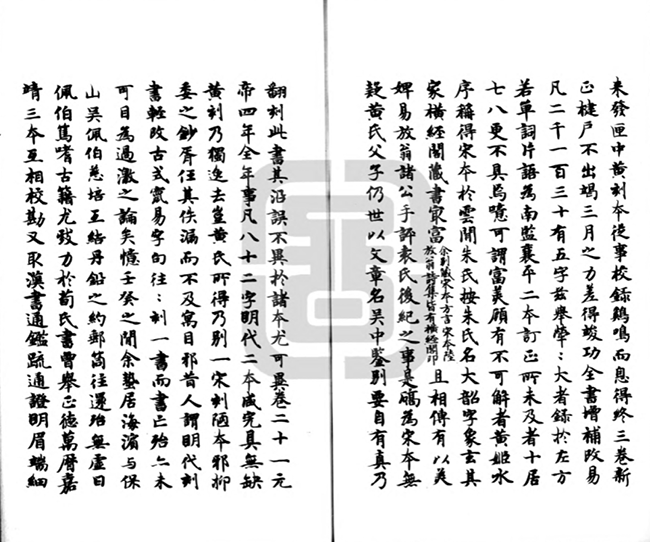 未發匣中黃刻本從事校錄鷄鳴而息得終三卷新
正楗戶不出竭三月之力差得竣功全書增補改易
凡二千一百三十有五字茲舉犖=大者錄於左方
若單詞片語為南監襄平二本訂正所未及者十居
七八更不具焉噫可謂富矣顧有不可解者黃姬水
序稱得宋本於雲間朱氏按朱氏名大韶字象玄其
家橫經閣藏書冣富余刻藏宋本方言宋本陸放翁詩集皆有橫經閣印且相傳有以美
婢易放翁諸公手評袁氏後紀之事是爲宋本無
疑黃氏父子仍世以文章名吳中鉴別要自有真乃
翻刻此書其㳂誤不異於諸本尤可異卷二十一元
帝四年全年事凡八十二字明代二本咸完具無缺
黃刻乃獨逸去豈黃氏所得乃別一宋刻陋本邪抑
委之鈔胥任其佚漏而不及寓目邪昔人謂明代刻
書輕改古式竄易字句往=刻一書而書亡殆亦未
可目為過激之論矣憶壬癸之間余蟄居海濱与保
山吳佩伯慈培互結丹鉛之約郵筒往還殆無虛日
佩伯篤嗜古籍尤致力於荀氏書曾舉正德萬曆嘉
靖三本互相校勘又取漢書通鑑疏通證明眉端細